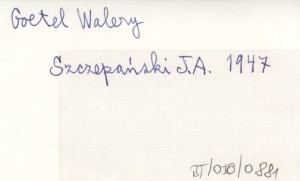 Goetel Walery
Szczepański J.A. 1947
BJ/010/0881